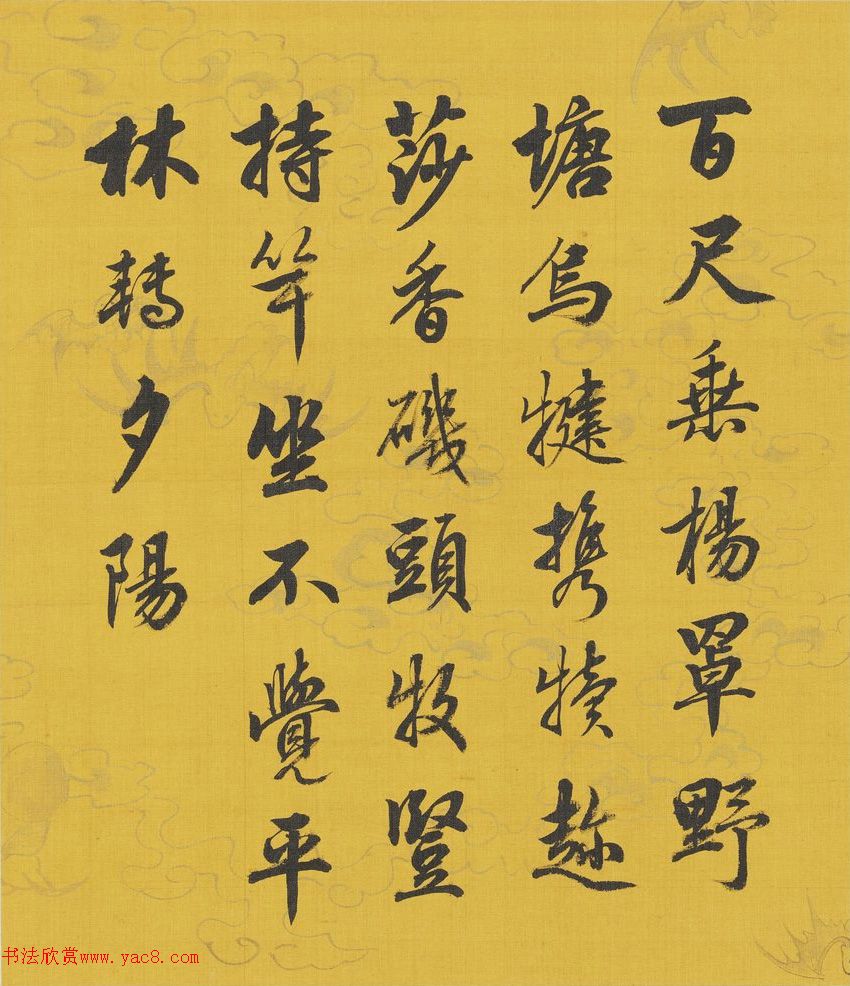 百尺垂楊罩野
塘烏犍携犢趂
莎香磯頭牧豎
持竿坐不覺平
林轉夕陽
书法欣赏www.yac8.com